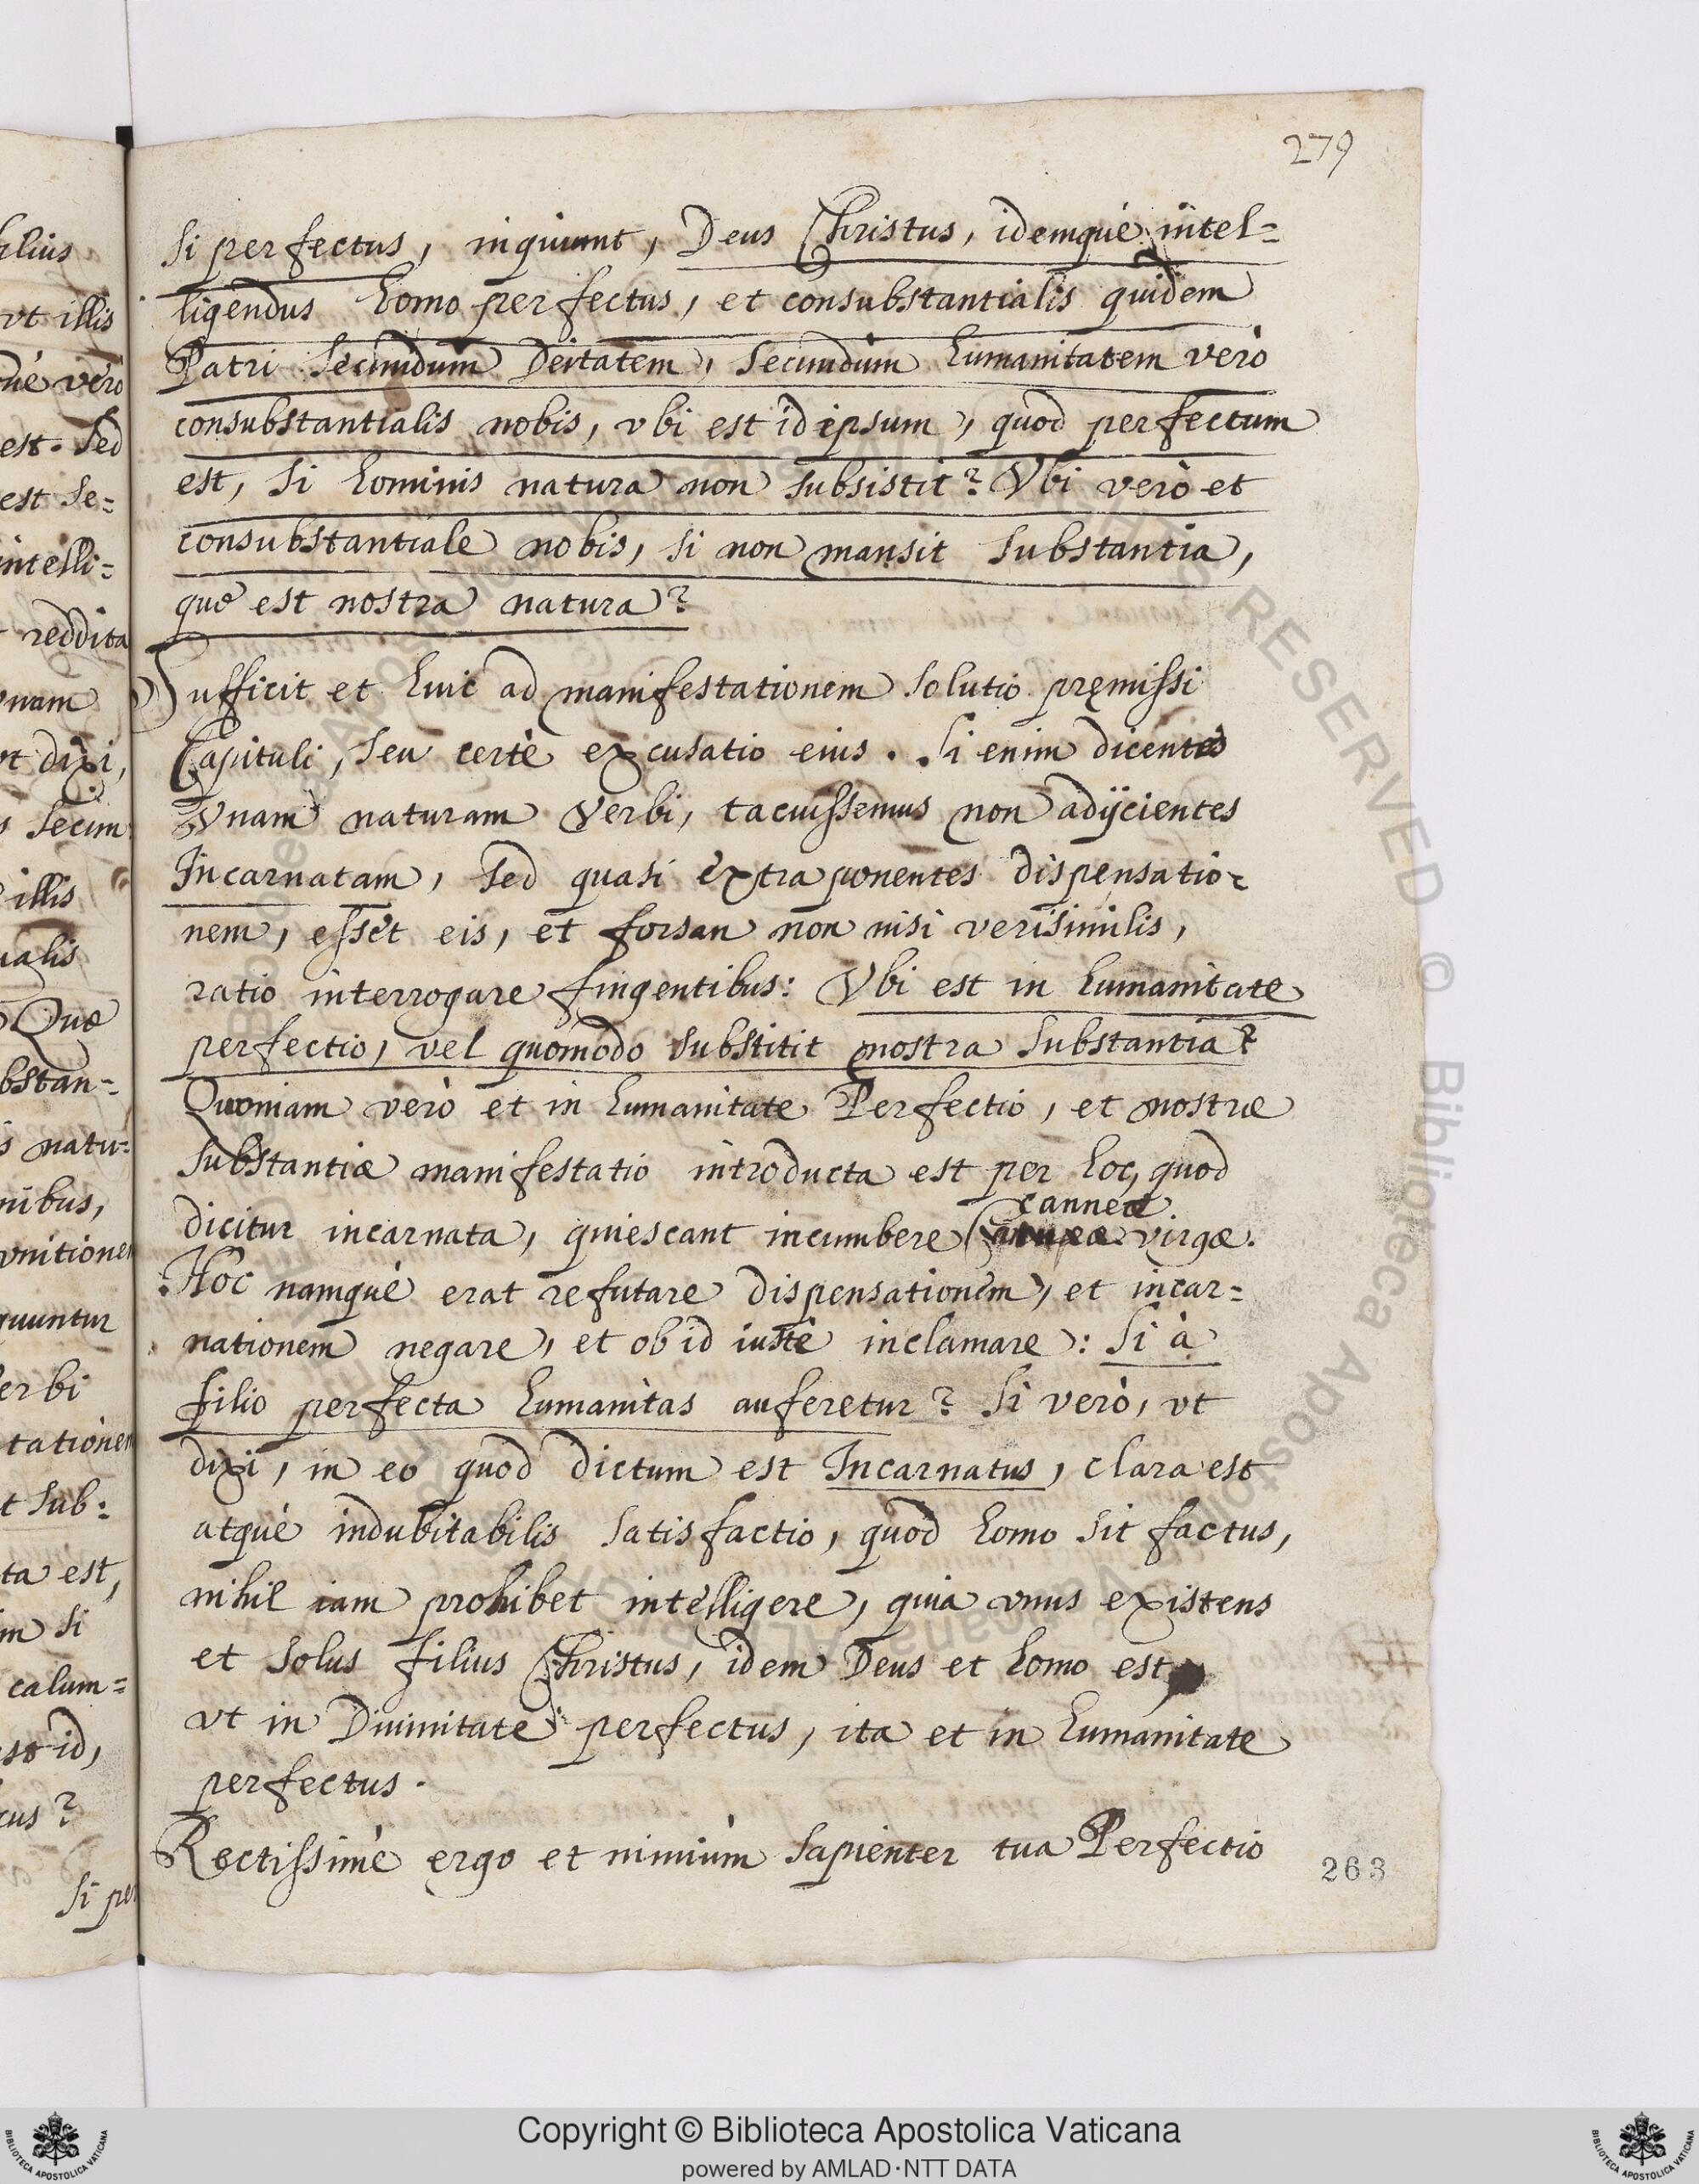 279
Si perfectus, inquiunt, Deus Christus, idemquè intel=
ligendus homo perfectus, et consubstantialis quidem
Patri secundum Deitatem, secundùm humanitatem verò
consubstantialis nobis, vbi est id ipsum, quod perfectum
est, si hominis natura non subsistit? Vbi verò et
consubstantiale nobis, si non mansit substantia,
quæ est nostra natura?
Sufficit et huic ad manifestationem solutio pręmissi
Capituli, seu certè excusatio eius. Si enim dicentes
Vnam naturam Verbi, tacuissemus non adijcientes
Incarnatam, sed quasi extra ponentes dispensatio=
nem, esset eis, et forsan non nisi verisimilis,
ratio interrogare fingentibus: Vbi est in humanitate
perfectio, vel quomodo substitit nostra substantia?
Quoniam verò et in humanitate Perfectio, et nostræ
substantiæ manifestatio introducta est per hoc, quod
canneæ
dicitur incarnata, quiescant incumbere virgæ.
Hoc namquè erat refutare dispensationem, et incar=
nationem negare, et ob id iustè inclamare: Si à
filio perfecta humanitas auferetur? Si verò, vt
dixi, in eo quod dictum est Incarnatus, clara est
atquè indubitabilis satisfactio, quod homo sit factus,
nihil iam prohibet intelligere, quia vnus existens
et solus filius Christus, idem Deus et homo est
vt in Diuinitate perfectus, ita et in humanitate
perfectus.
Rectissimè ergo et nimiùm sapienter tua Perfectio
263
filius
vt illis
què verò
est. Sed
est se=
intelli=
reddita
nam
vt dixi,
s secun
illis
ialis
Quæ
bstan=
s natu=
nibus,
vnitionem
quuntur
erbi
tationem
t sub=
ta est,
m si
calum=
est id,
cus?
Si per
Copyright © Biblioteca Apostolica Vaticana
powered by AMLAD·NTT DATA